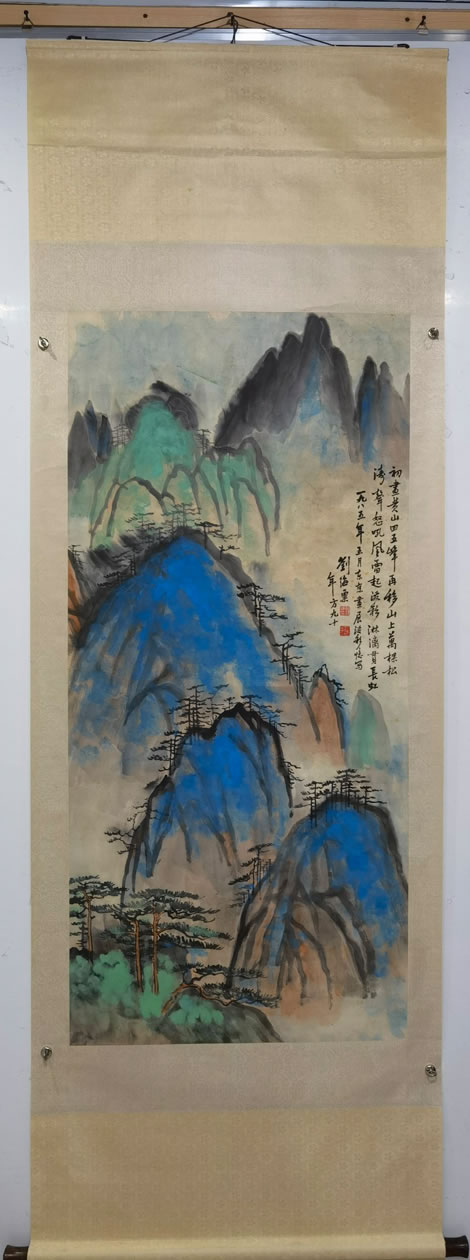 初畫黄山四五峰再移山上萬棵松
濤聲怒吼風雷起流彩淋漓貫長虹
一九八五年五月東京畫展
劉海粟
年方九十